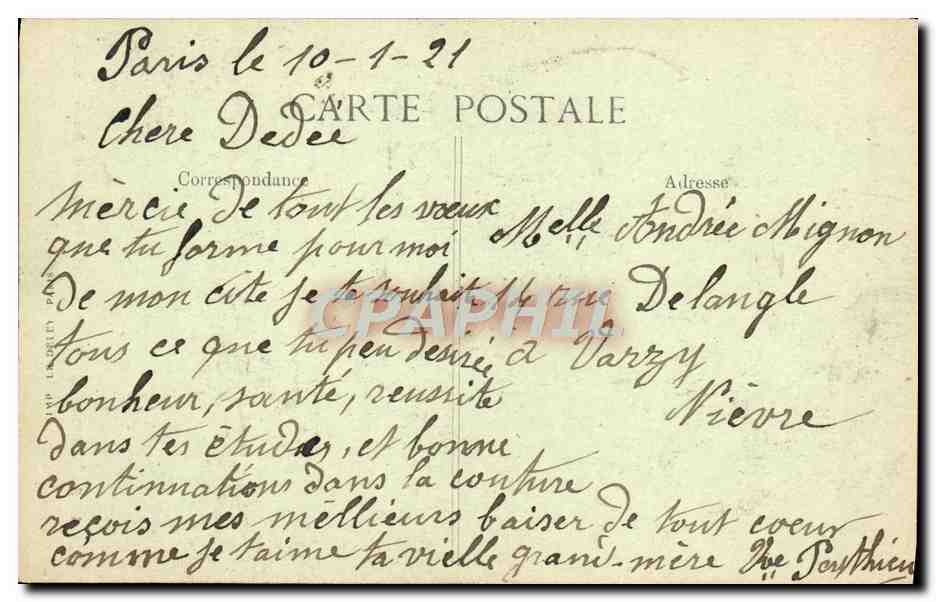 Paris le 10-1-21
CARTE POSTALE
Chere Dedée
Correspondance
Mèrcie de tout les vœux
que tu forme pour moi
de mon cité je te souhait
tous ce que tu peu désirée
bonheur, santé, reussite
dans tes études, et bonne
continnuations dans la couture
reçois mes mèllieurs baiser de tout coeur
comme je taime ta vielle grand-mère Vve
Adresse
Melle Andrée Mignon
14 rue Delangle
à Varzy
Nièvre
CPAPHIL